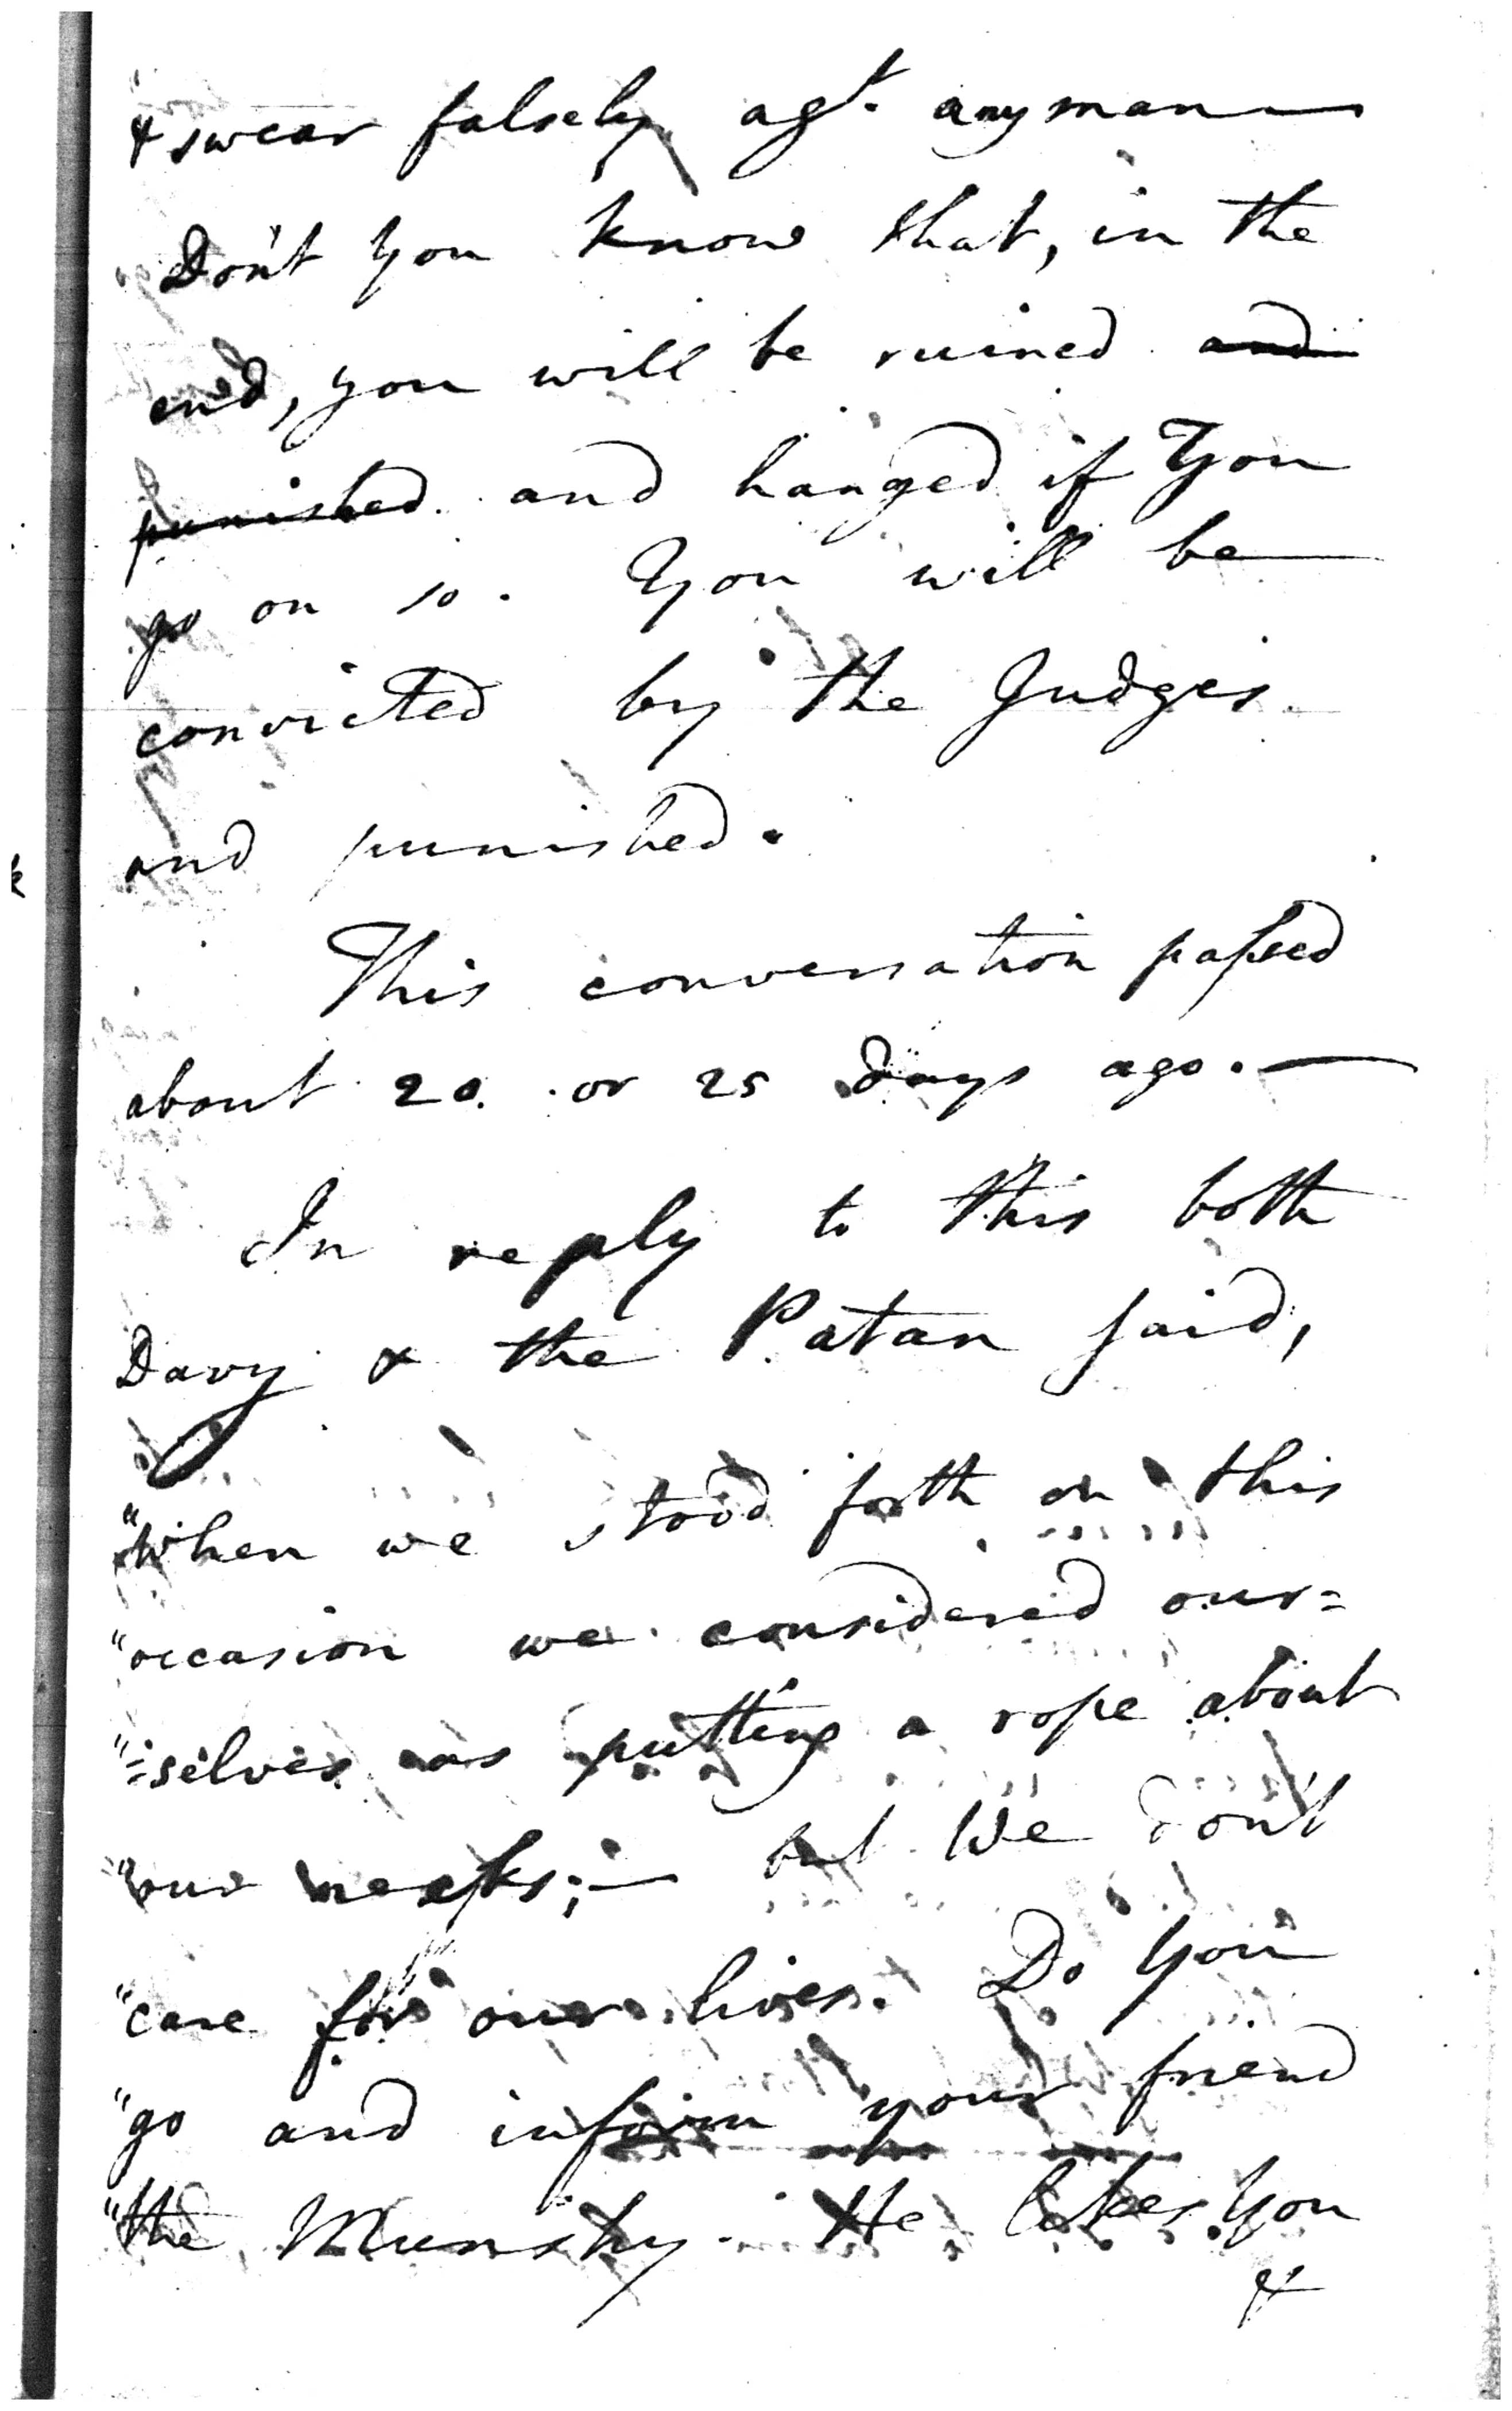 & swear falsely agt. any man —
Don't you know that, in the
end, you will be ruined and
punished and hanged if You
go on so. You will be —
convicted by the Judges
and punished.
This conversation passed
about 20 or 25 days ago. —
In reply to this both
Davy & the Patan said,
"When we stood forth on this
"occasion we considered our=
"=selves as putting a rope about
"our necks; — but We don't
"care for our lives. Do You
"go and inform your friend
"the Munshy. He likes You
&